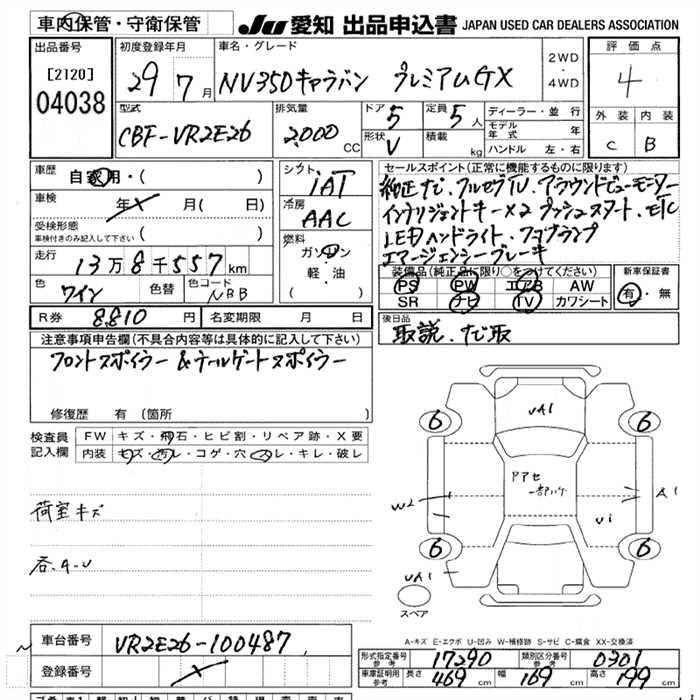 車内保管・守衛保管
JU 愛知 出品申込書 JAPAN USED CAR DEALERS ASSOCIATION
出品番号
[2120]
04038
初度登録年月
29 7月
車名・グレード
NV350キャラバン プレミアムGX
2WD
・
4WD
評価点
4
外装 内装
C B
型式
CBF-VR2E26
排気量
2,000 CC
ドア 5
形状 V
定員 5人
積載 kg
ディーラー・並行
モデル年式 年
ハンドル 左・右
車歴
自家用・( )
車検
年 X 月( 日)
受検形態
車検付きのみ記入して下さい ( )
走行
13万8千557km
色
ワイン
色替
色コード
NBB
シフト
IAT
冷房
AAC
燃料
ガソリン
軽・油
( )
セールスポイント(正常に機能するものに限ります)
純正ナビ.フルセグTV.アラウンドビューモニター
インテリジェントキー×2 プッシュスタート.ETC
LEDヘッドライト.フォグランプ
エマージェンシーブレーキ
装備品(純正品に限り○をつけてください)
PS PW エアB AW
SR ナビ TV カワシート
新車保証書
有・無
R券 8,810 円 名変期限 月 日
後日品
取説.ナビ取
注意事項申告欄(不具合内容等は具体的に記入して下さい)
フロントスポイラー & テールゲートスポイラー
修復歴 有(箇所 )
検査員
記入欄
FW キズ・飛石・ヒビ割・リペア跡・X要
内装 キズ・汚レ・コゲ・穴・スレ・キレ・破レ
荷室キズ
各.A-U
UA1
6 6
ドアセ
一部ハゲ
W2
A1
U1
6 6
UA1
スペア
A-キズ E-エクボ U-凹み W-補修跡 S-サビ C-腐食 XX-交換済
車台番号 VR2E26-100487
登録番号 X
形式指定番号
参考
17290
類別区分番号
参考
0301
車庫証明用
参考
長さ 469cm 幅 169cm 高さ 199cm